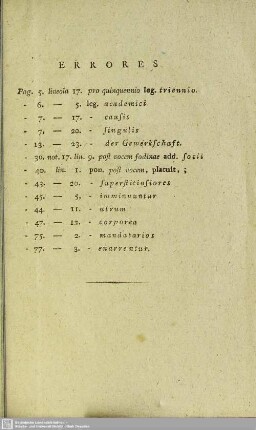 ERRORES
Pag. 5. lineola 17. pro quinquennio leg. triennio.
- 6. — 5. leg. academici
- 7. — 17. - causis
- 7. — 20. - singulis
- 13. — 23. - der Gewerkschaft.
- 30. not. 17. lin. 9. post vocem fodinae add. socii
- 40. lin. 1. pon. post vocem, placuit, ;
- 43. — 20. - superstitiosiores
- 45. — 5. - imminuuntur
- 44. — 11. - utrum
- 47. — 12. - corporea
- 75. — 2. - mandatarios
- 77. — 3. - enarrentur.